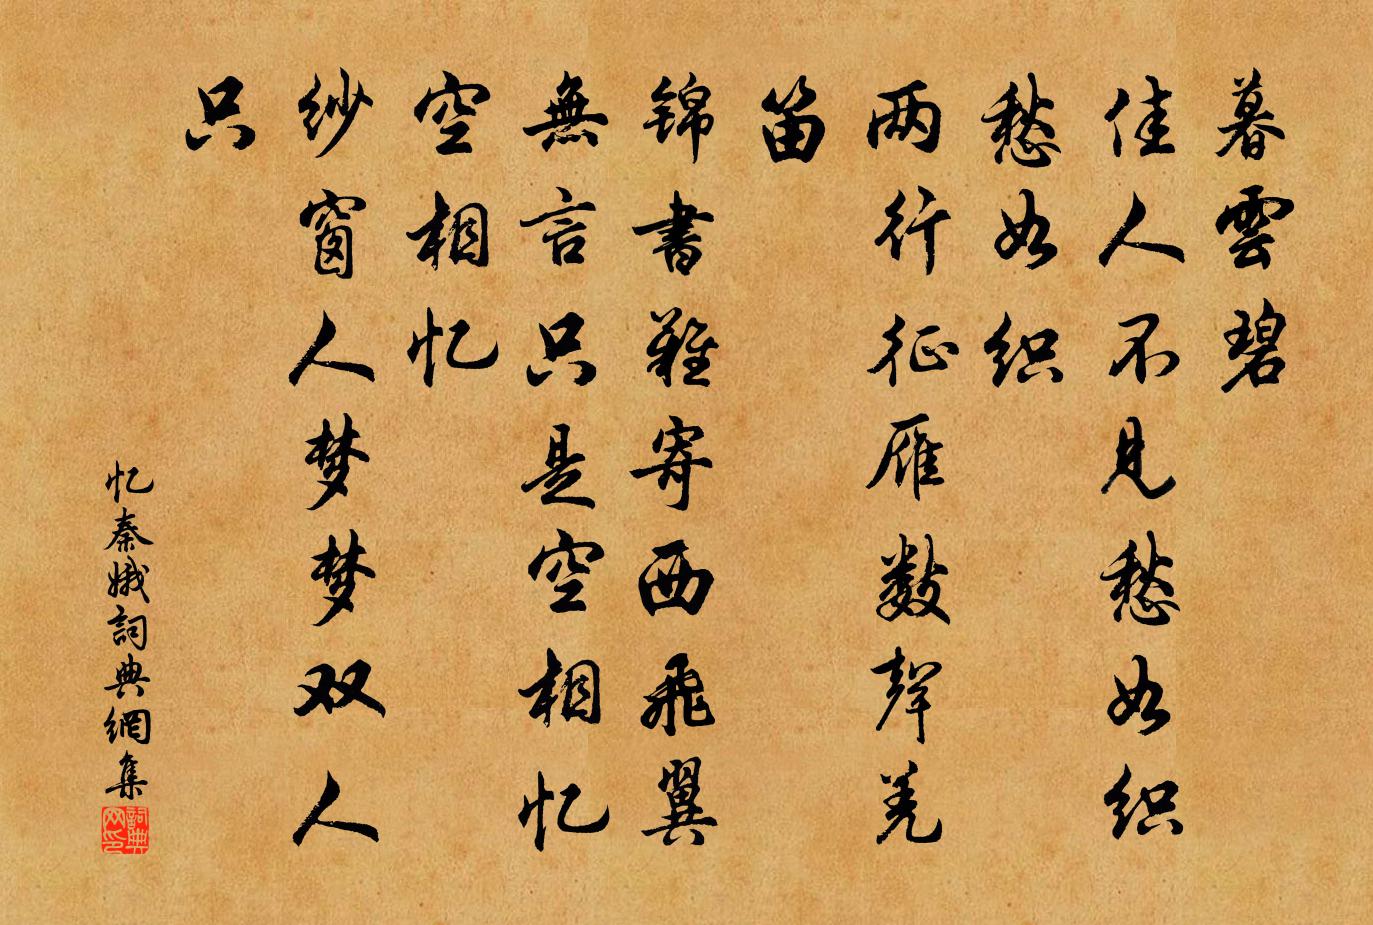 暮雲碧
佳人不見愁如织
愁如织
两行征雁数聲羌
笛
锦書難寄西飛翼
無言只是空相忆
空相忆
纱窗人梦梦双人
只
忆秦娥詞典網集
詞典网印